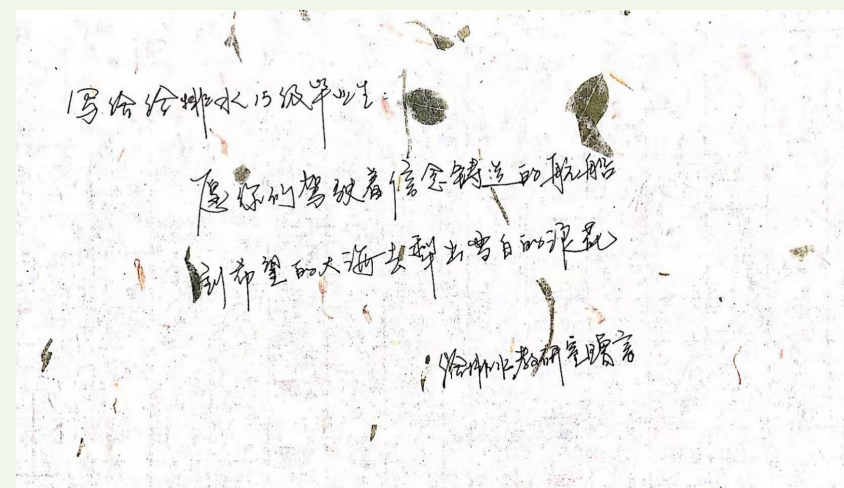 写给给排水15级毕业生:
愿你们驾驶着信念铸造的航船
到希望的大海去犁出雪白的浪花
给排水教研室赠言